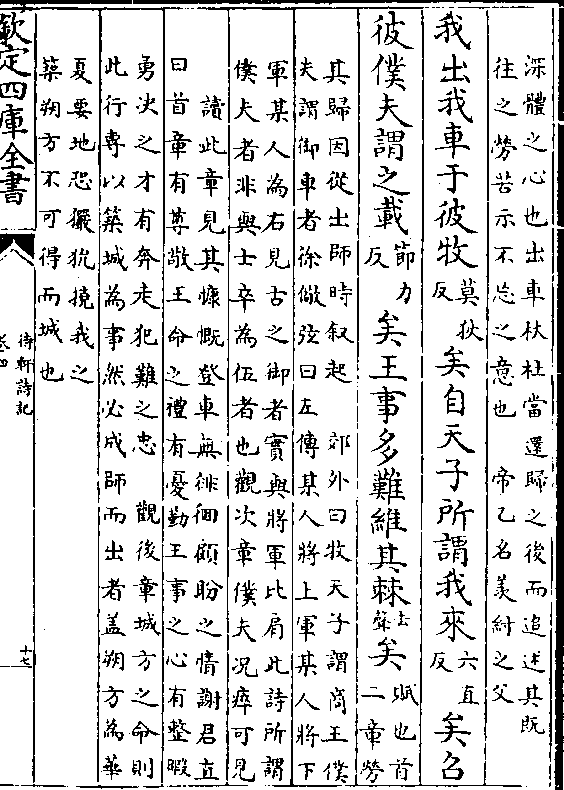 深體之心也出車杕杜當還歸之後而追述其既
往之勞苦示不忘之意也　帝乙名羡紂之父
我出我車于彼牧莫狄反矣自天子所謂我來六直反矣召
彼僕夫謂之載節力反矣王事多難維其棘去聲矣賦也首二章勞
其歸因從出師時叙起　郊外曰牧天子謂商王僕
夫謂御車者徐儆弦曰左傳某人將上軍某人將下
軍某人為右見古之御者實與將軍比肩此詩所謂
僕夫者非與士卒為伍者也觀次章僕夫况瘁可見
讀此章見其慷慨登車無徘徊顧盼之情謝君直
曰首章有尊敬王命之禮有憂勤王事之心有整暇
勇决之才有奔走犯難之忠　觀後章城方之命則
此行専以築城為事然必成師而出者盖朔方為華
夏要地恐玁狁撓我之
築朔方不可得而城也
欽定四庫全書
待軒詩記
卷四
十七